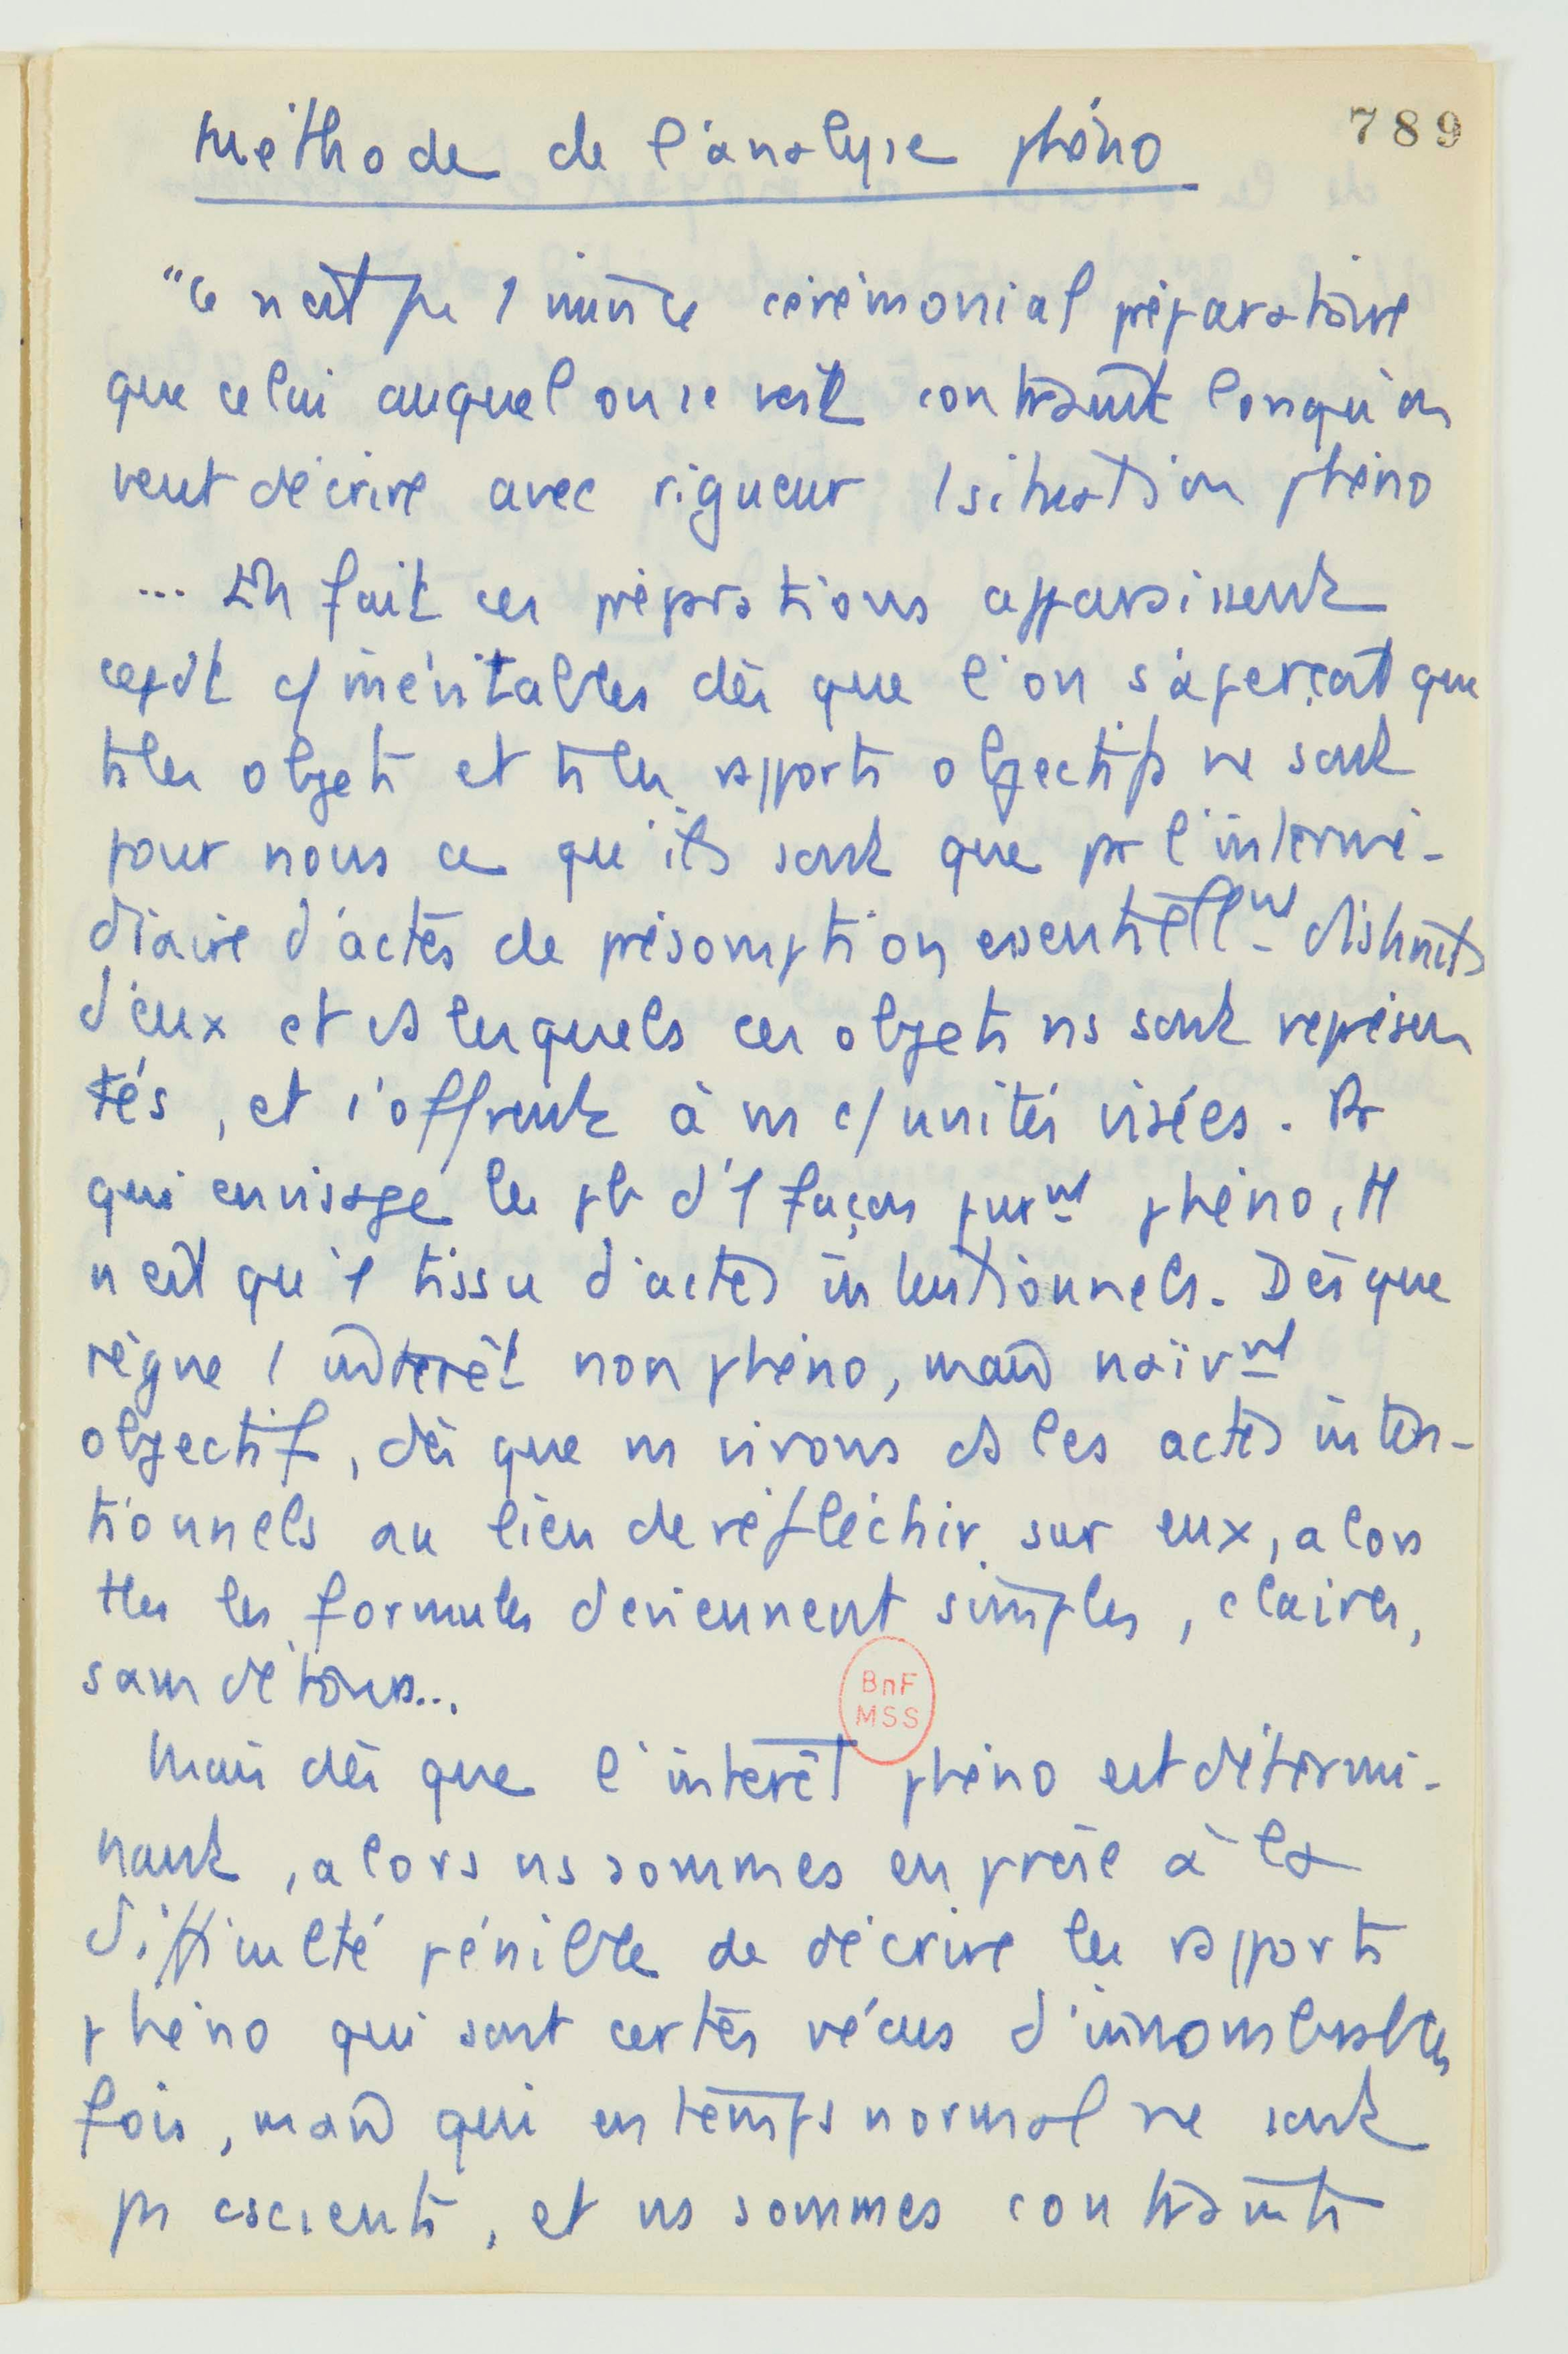 Méthode de l'analyse phéno
789
"Ce n'est pas 1 mince cérémonial préparatoire
que celui auquel on se voit contraint lorsqu'on
veut décrire avec rigueur 1 situation phéno
... En fait ces préparations apparaissent
c/ inévitables dès que l'on s'aperçoit que
ts les objets et ts les rapports objectifs ne sont
pour nous ce qu'ils sont que pr l'intermé-
diaire d'actes de présomption essentiellmt distincts
d'eux et ds lesquels ces objets ns sont représen
tés, et s'offrent à ns c/ unités visées. Pr
qui envisage les pb d'1 façon purmt phéno, il
n'est qu'1 tissu d'actes intentionnels. Dès que
règne 1 intérêt non phéno, mais naïvmt
objectif, dès que ns vivons ds les actes inten-
tionnels au lieu de réfléchir sur eux, alors
ttes les formules deviennent simples, claires,
sans détours...
BnF
MSS
Mais dès que l'intérêt phéno est détermi-
nant, alors ns sommes en proie à la
difficulté pénible de décrire les rapports
phéno qui sont certes vécus d'innombrables
fois, mais qui en temps normal ne sont
ps cscients, et ns sommes contraints